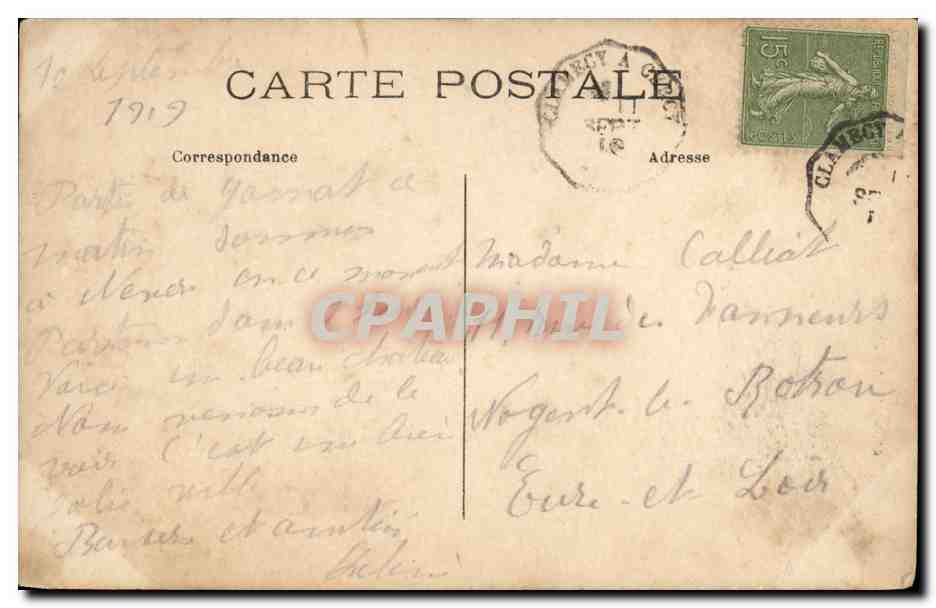 10 Septembre
1919
CARTE POSTALE
Correspondance
Adresse
Partis de Gannat ce
matin sommes
à Nevers en ce moment
Partons dans
Voici un beau chateau
Nous venons de le
voir C'est une bien
jolie ville
Baisers et amitiés
Madame Calliat
11 rue des Tanneurs
Nogent-le-Rotrou
Eure-et-Loir
CLAMECY A CERCY
11
SEPT
CLAMECY
15c
POSTES
CPAPHIL